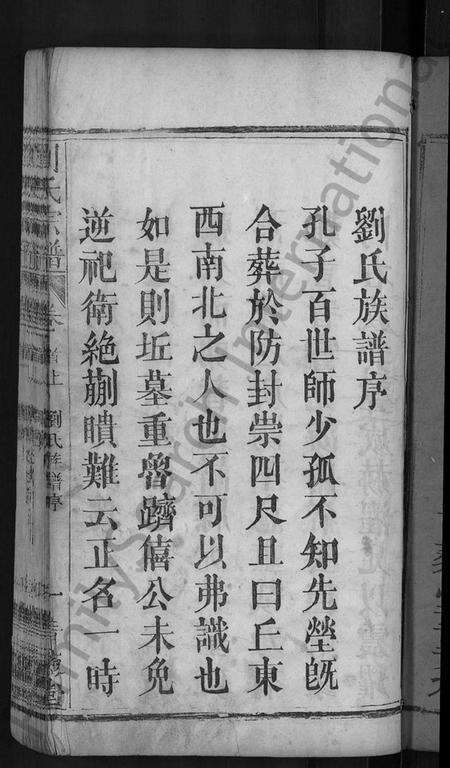 劉氏族譜序
孔子百世師少孤不知先塋旣
合葬於防封崇四尺且曰丘東
西南北之人也不可以弗識也
如是則坵墓重魯躋僖公未免
逆祀衛絶蒯瞶難云正名一時
氏宗譜
卷首上
劉氏族譜序
一